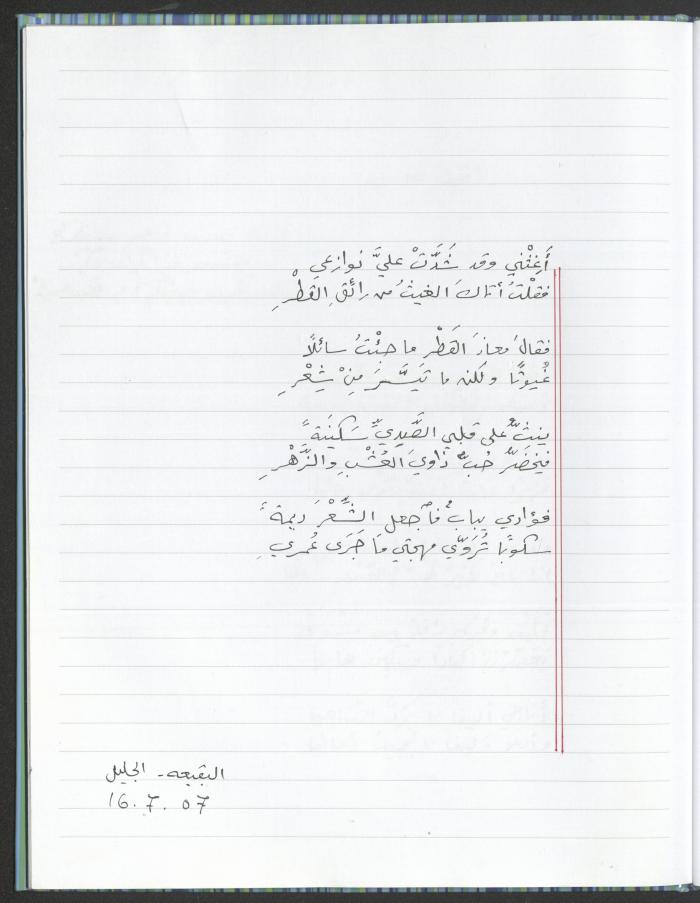 أَغِثْني وقد شَدَّتْ عليَّ نوازعي
فقلْتُ أتاكَ الغيثُ من رائقِ القَطْرِ
فقالَ معاذَ القَطْرِ ما جئْتُ سائلًا
غُيوثًا ولكنه ما تيَسَّرَ مِنْ شِعْرِ
ينثُّ على قلبي الصَّدِيِّ سَكينَةً
فيخضَرُّ حُبٌّ ذاويَ العُشْبِ والزَّهْرِ
فؤادي يبابٌ فٱجعل الشِّعْرَ ديمةً
سكوبًا تُرَوّي مهجتي مَا جَرَى عُمري
البقيعه - الجليل
16.7.07